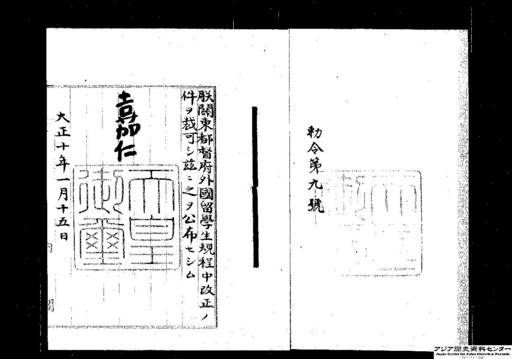 勅令第九號
朕關東都督府外國留學生規程中改正ノ
件ヲ裁可シ茲ニ之ヲ公布セシム
嘉仁
天皇御璽
大正十年一月十五日
アジア歴史資料センター
Japan Center for Asian Historical Records